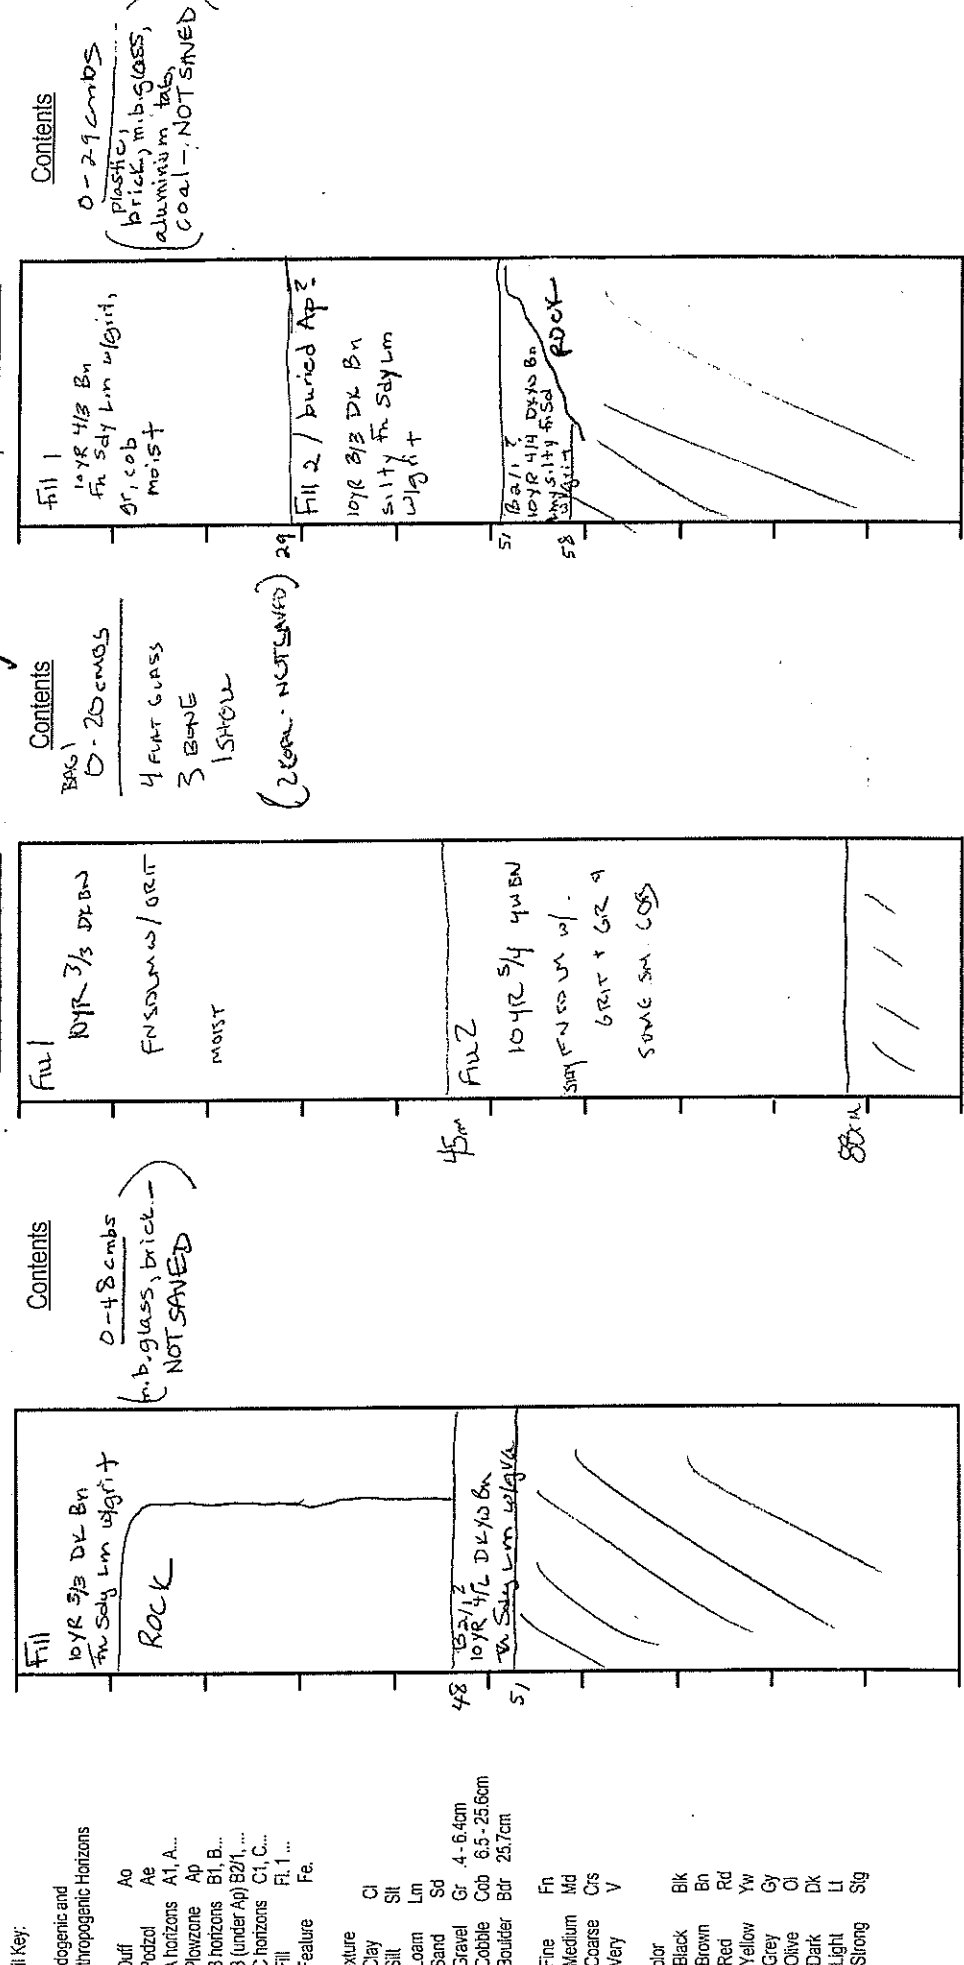 il Key:
dogenic and
thropogenic Horizons
Duff Ao
Podzol Ae
A horizons A1, A...
Plowzone Ap
B horizons B1, B...
B (under Ap) B2/1, ...
C horizons C1, C...
Fill Fl. 1 ...
Feature Fe.
xture
Clay Cl
Silt Slt
Loam Lm
Sand Sd
Gravel Gr .4 - 6.4cm
Cobble Cob 6.5 - 25.6cm
Boulder Bdr 25.7cm
Fine Fn
Medium Md
Coarse Crs
Very V
olor
Black Blk
Brown Bn
Red Rd
Yellow Yw
Grey Gy
Olive Ol
Dark Dk
Light Lt
Strong Stg
Fill
10YR 3/3 Dk Bn
Fn Sdy Lm w/grit
ROCK
48
B2/1?
10YR 4/ Dk Yw Bn
Fn Sdy Lm w/
51
Contents
0-48 cmbs
(m.b.glass, brick -
NOT SAVED)
Fill 1
10YR 3/3 DKBN
FNSDLM W/ GRIT
MOIST
45cm
Fill 2
10YR 5/4 YWBN
FNSDLM W/
GRIT + GR +
SOME SM. COB
88cm
Contents
BAG 1
0-20 CMBS
4 FLAT GLASS
3 BONE
1 SHELL
(2 COAL - NOT SAVED)
Fill 1
10YR 4/3 Bn
Fn Sdy Lm w/grit,
gr, cob
moist
29
Fill 2 / buried Ap?
10YR 3/3 Dk Bn
silty Fn Sdy Lm
w/grit
51
B2/1?
10YR 4/4 DkYwBn
lmy silty FnSd
w/grit
58
ROCK
Contents
0-29 cmbs
(plastic,
brick, m.b.glass,
aluminium tab,
coal - NOT SAVED)